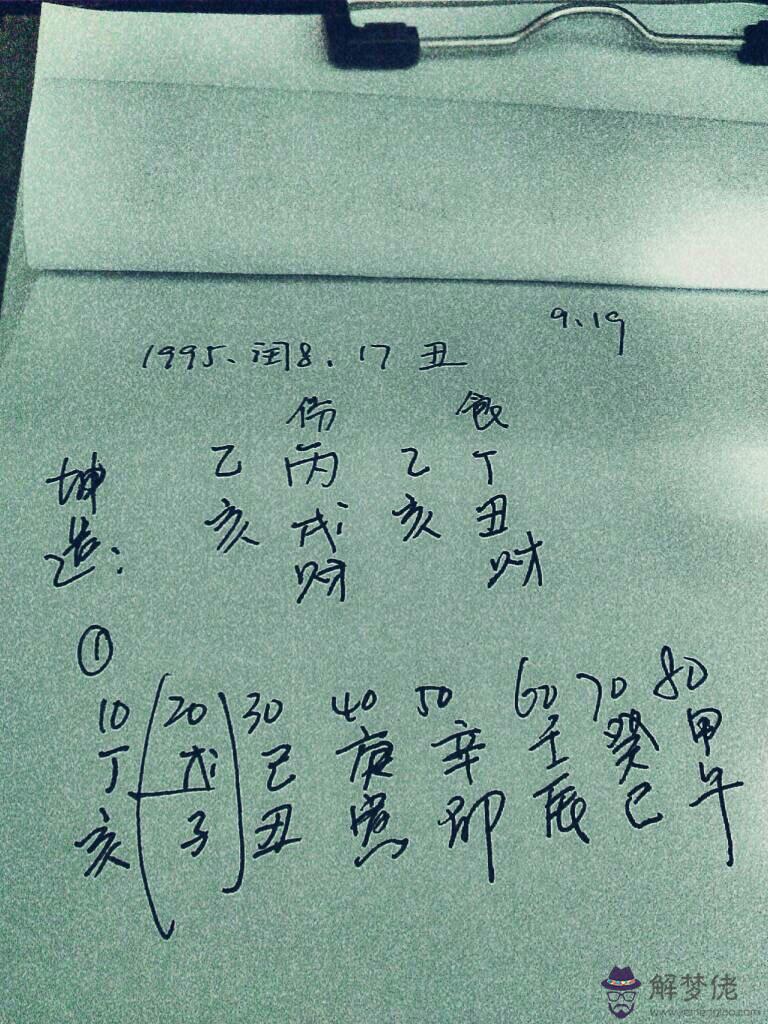 9.19
1995、闰8、17 丑
伤 食
坤 乙 丙 乙 丁
造: 亥 戌 亥 丑
财 财
①
10 20 30 40 50 60 70 80
丁 戊 己 庚 辛 壬 癸 甲
亥 子 丑 寅 卯 辰 巳 午
解梦佬